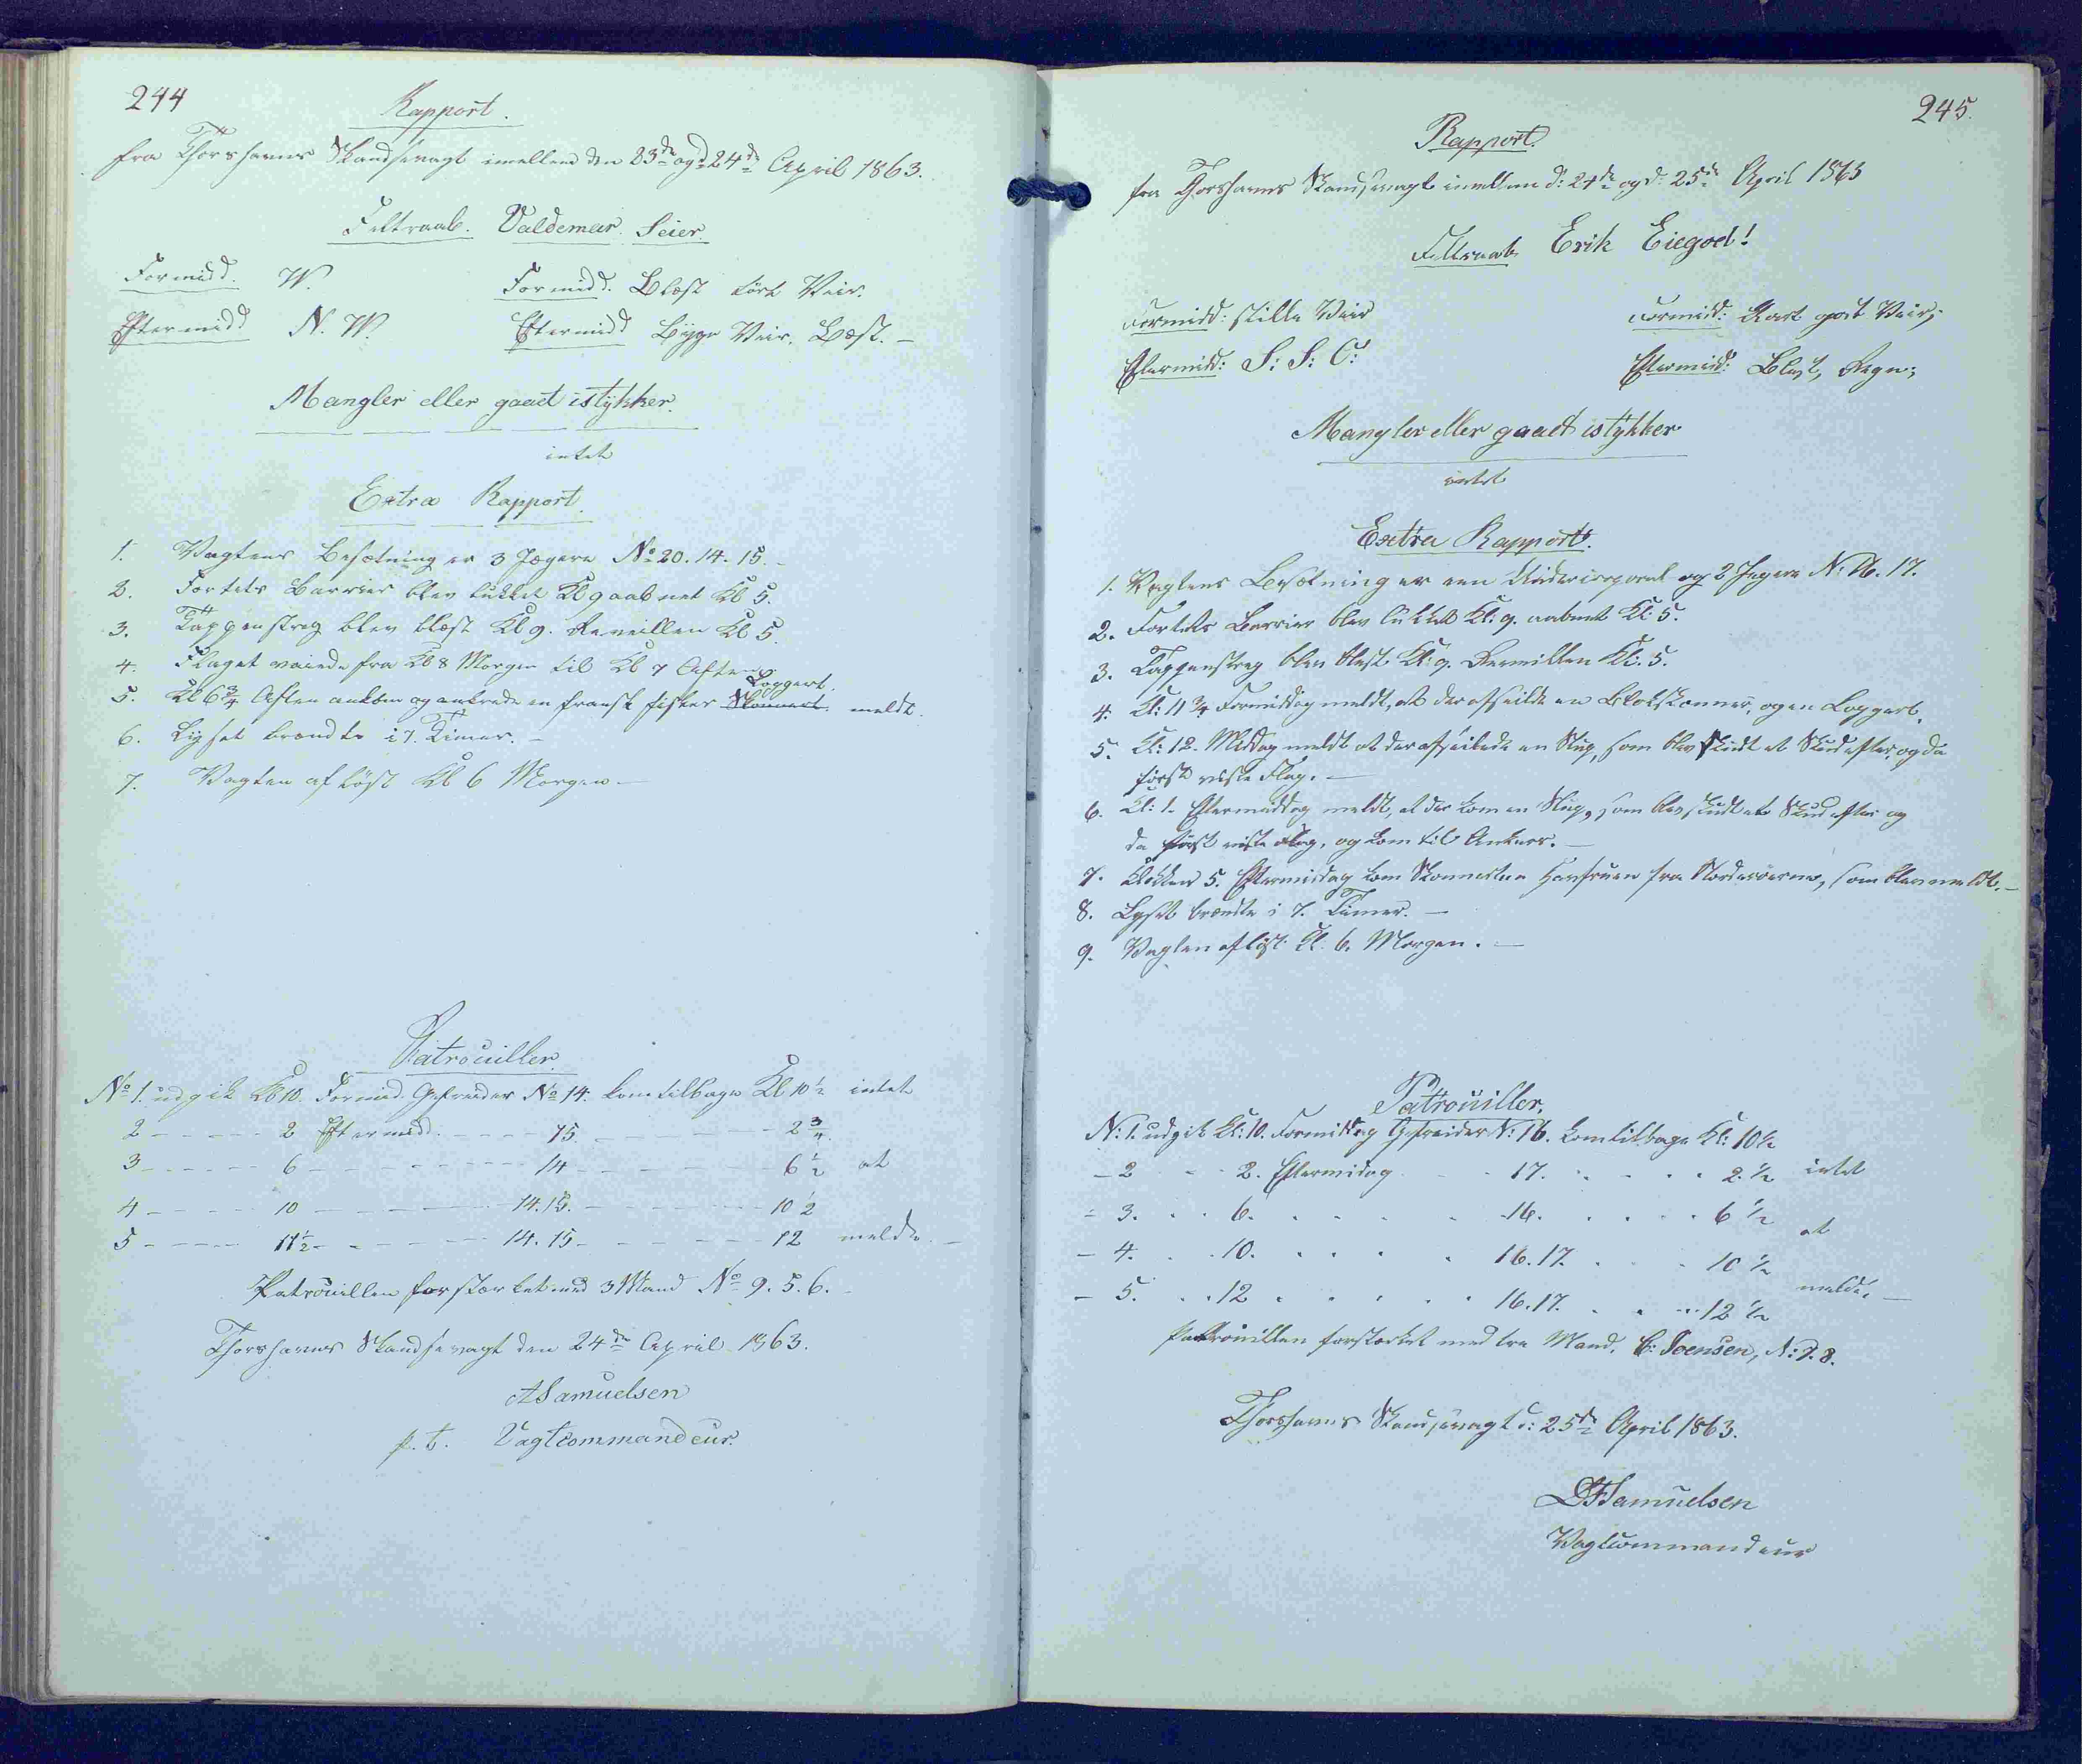 244
Rapport.
fra Thorshavns Skandsevagt imellem den 23de og 24de April 1863.
Feltraab. Valdemar Seier
Formidd. W. Formidd. Blæst tört Veir.
Eftermidd N. W. Eftermidd Byge Veir. Blæst. -
Mangler eller gaaet istykker.
intet
Extra Rapport.
1. Vagtens Besætning er 3 Jægere No 20. 14. 15. -
2. Fortets Barrier blev lukket Kl 9 aabnet Kl 5.
3. Tappenstreg blev blæst Kl 9. Reveillen Kl 5.
4. Flaget vaiede fra Kl 8 Morgen til Kl 7 Aften
5. Kl 6 3/4 Aften ankom og ankrede en fransk fisker Loggert. meldt.
6. Lyset brændte i 7. Timer. -
7. Vagten aflöst Kl 6 Morgen -
Patrouiller.
No 1. udgik Kl 10. Formid. Gefreider No 14. kom tilbage Kl 10 1/2 intet
2 - - - - - 2 Eftermidd. - - - - 15 - - - - - - 2 3/4
3 - - - - - 6 - - - - - - - - 14 - - - - - - 6 1/2 at
4 - - - - - 10 - - - - - - - 14. 15. - - - - - - 10 1/2
5 - - - - - 11 1/2 - - - - - - 14. 15 - - - - - - 12 melde. -
Patrouillen forstærket med 3 Mand No 9. 5. 6. -
Thorshavns Skandsevagt den 24de April 1863.
A Samuelsen
p. t. Vagtcommandeur.
245.
Rapport.
fra Thorshavns Skandsevagt imellem d: 24de og d: 25de April 1863
Feltraab Erik Eiegod!
Formidd: stille Veir Formidd: Klart godt Veir;
Eftermidd: S: S: O: Eftermidd: Blæst, Regn;
Mangler eller gaaet istykker
intet
Extra Rapport.
1. Vagtens Besætning er een Undercorporal og 2 Jægere N: 16. 17.
2. Fortets Barrier blev lukket Kl: 9. aabnet Kl: 5.
3. Tappenstreg blev blæst Kl: 9. Reveillen Kl: 5.
4. Kl: 11 3/4 Formiddag meldt, at der afseilde en Slobskonnert, og en Loggert.
5. Kl: 12. Middag meldt at der afseilede en Slup, som blev skudt et Skud efter, og da
först viste Flag. -
6. Kl: 1. Eftermiddag meldt, at der kom en Slup, som blev skudt et Skud efter og
da först viste Flag, og kom til Ankers. -
7. Klokken 5. Eftermiddag kom Skonnerten Havfruen fra Norderöerne, som blev meldt. -
8. Lyset brændte i 7. Timer. -
9. Vagten aflöst Kl. 6. Morgen. -
Patrouiller.
N: 1. udgik Kl: 10. Formiddag Gefreider N: 16. kom tilbage Kl: 10 1/2
- 2 - - 2. Eftermidag - - 17. . . . . 2. 1/2 intet
- 3. . . 6. . . . . 16. . . . . 6 1/2
at
- 4. . . 10. . . . . 16. 17. . . . 10 1/2
- 5. . . 12 . . . . . 16. 17. . . . 12 1/2 melde. -
Patrouillen forstærket med tre Mand. C: Joensen, N: 7. 8.
Thorshavns Skandsevagt d: 25de April 1863.
Samuelsen
Vagtcommandeur